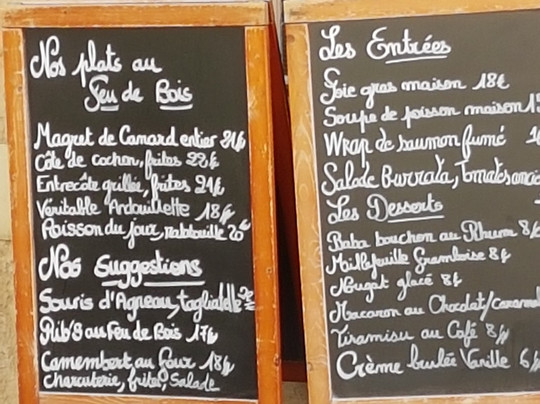 Nos plats au
Feu de Bois
Magret de Canard entier 24€
Côte de cochon, frites 22€
Entrecôte grillée, frites 24€
Véritable Andouillette 18€
Poisson du jour, ratatouille 20€
Nos Suggestions
Souris d'Agneau, tagliatelle
Rib's au Feu de Bois 17€
Camembert au four 18€
Charcuterie, frites, Salade
Les Entrées
Foie gras maison 18€
Soupe de poisson maison
Wrap de saumon fumé
Salade Burrata, tomates
Les Desserts
Baba bouchon au Rhum 8€
Millefeuille Framboise 8€
Nougat glacé 8€
Macaron au Chocolat/
Tiramisu au Café 8€
Crème brulée Vanille 6€